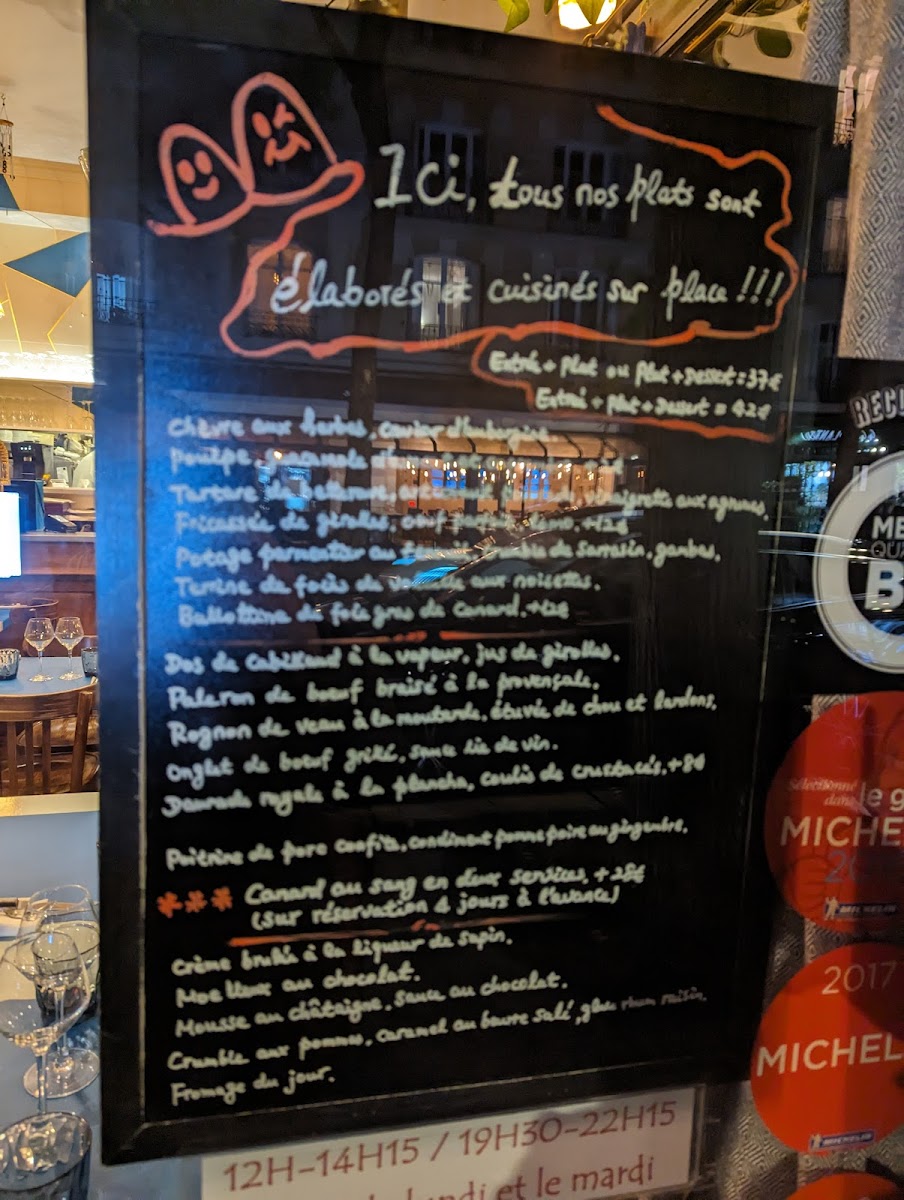 Ici, tous nos plats sont
élaborés et cuisinés sur place !!!
Entrée + Plat ou Plat + Dessert = 37€
Entrée + plat + Dessert = 42€
Chèvre aux herbes, caviar d'aubergine.
Poulpe
Tartare de betterave, vinaigrette aux agrumes.
Fricassée de girolles, œuf +12€
Potage parmentier au de sarrasin, gambas.
Terrine de foies de volaille aux noisettes.
Ballottine de foie gras de canard. +12€
Dos de cabillaud à la vapeur, jus de girolles.
Paleron de bœuf braisé à la provençale.
Rognon de veau à la moutarde, étuvée de chou et lardons.
Onglet de bœuf grillé, sauce lie de vin.
Daurade royale à la plancha, coulis de crustacés. +8€
Poitrine de porc confite, condiment pomme poire au gingembre.
*** Canard au sang en deux services, + 28€
(sur réservation 4 jours à l'avance)
Crème brulée à la liqueur de sapin.
Moelleux au chocolat.
Mousse au châtaigne, sauce au chocolat.
Crumble aux pommes, caramel au beurre salé, glace rhum raisin.
Fromage du jour.
12H-14H15 / 19H30-22H15
lundi et le mardi
RECO
ME
QU
B
Sélectionné
dans
le g
MICHE
MICHELIN
2017
MICHEL
MICHELIN